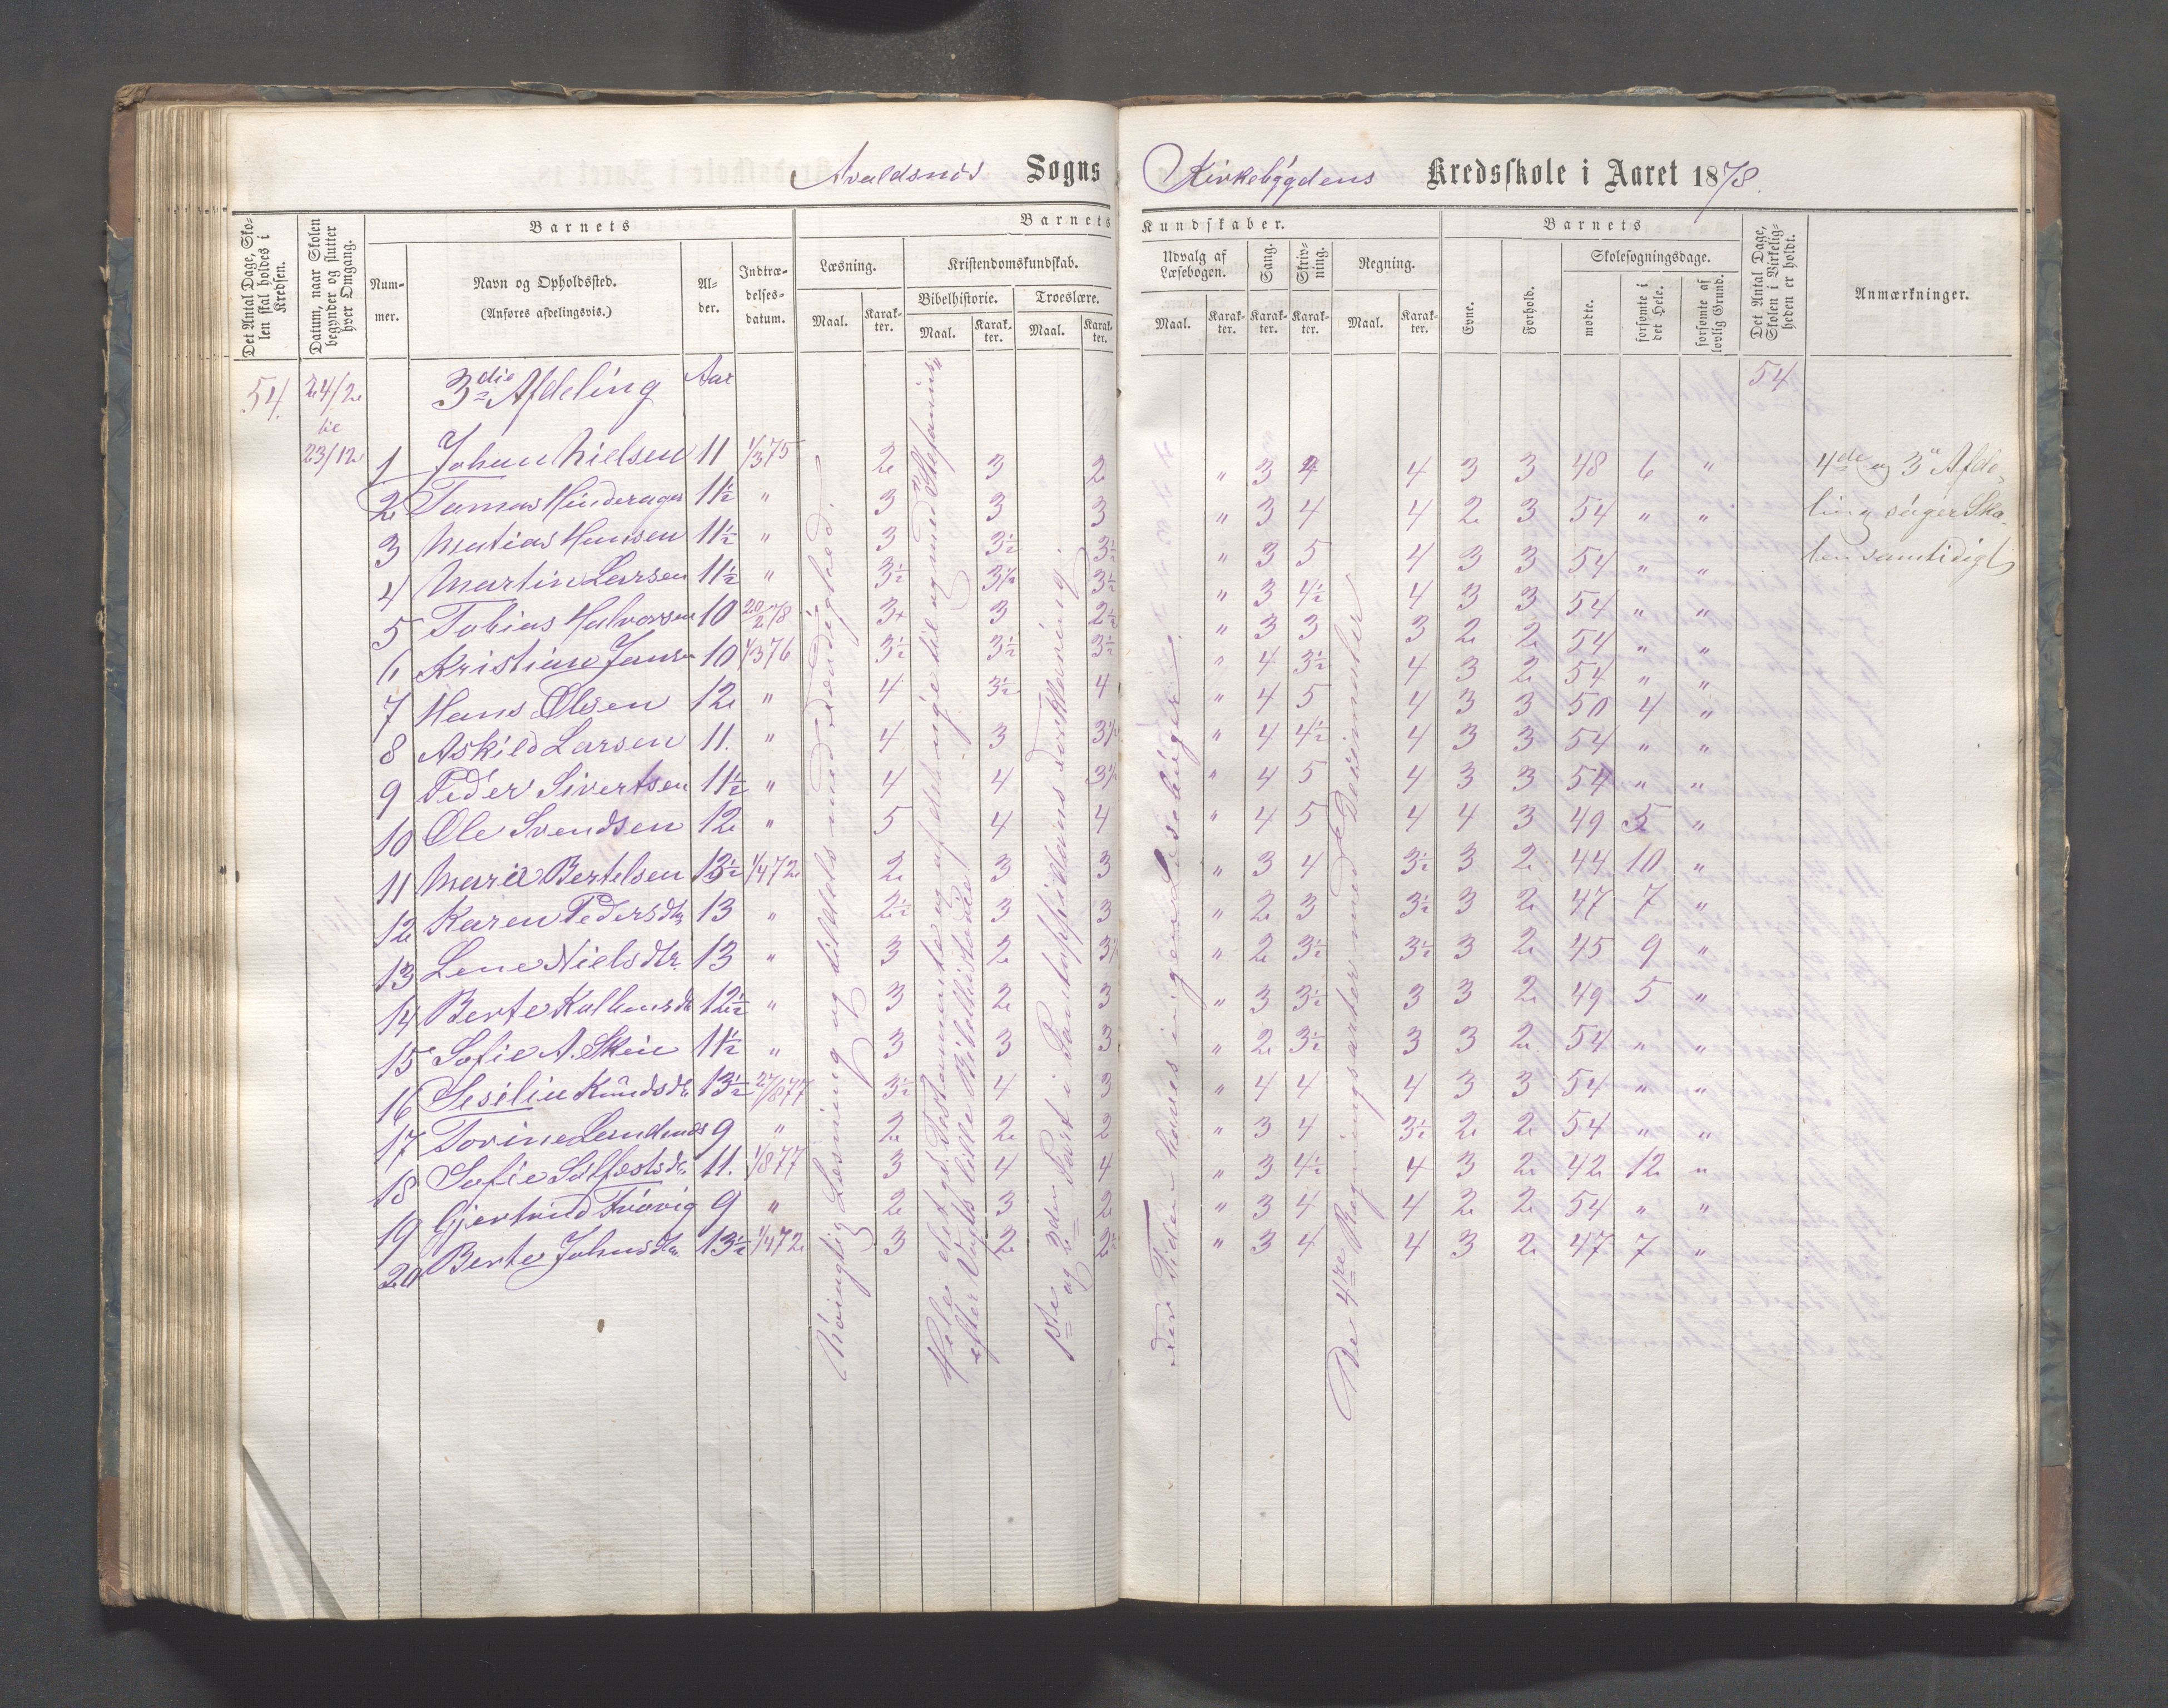 Avaldsnæs Sogns Kirkebÿgdens Kredsskole i Aaret 1878.
Det Antal Dage, Skolen skal holdes i Kredsen.
Datum, naar Skolen begynder og slutter hver Omgang.
Barnets
Barnets Kundskaber.
Barnets
Det Antal Dage, Skolen i Virkeligheden er holdt.
Anmærkninger.
Nummer.
Navn og Opholdssted.
(Anføres afdelingsvis.)
Alder.
Indtrædelsesdatum.
Læsning.
Kristendomskundskab.
Bibelhistorie.
Troeslære.
Udvalg af Læsebogen.
Sang.
Skrivning.
Regning.
Evne.
Forhold.
Skolesøgningsdage.
mødte.
forsømte i det Hele.
forsømte af lovlig Grund.
Maal. Karakter. Maal. Karakter. Maal. Karakter. Maal. Karakter. Karakter. Karakter. Maal. Karakter.
54. 24/2 3die Afdeling Aar 54
til
23/12
1 Johan Nielsen 11 1/3 75 2 3 2 " 3 4 4 3 3 48 6 "
2 Tomas Hinderager 11½ " 3 3 3 " 3 4 4 2 3 54 " "
3 Matias Hansen 11½ " 3 3½ 3½ " 3 5 4 3 3 54 " "
4 Martin Larsen 11½ " 3½ 3½ 3½ " 3 4½ 4 3 3 54 " "
5 Tobias Halvorsen 10 20/2 78 3+ 3 2½ " 3 3 3 2 2 54 " "
6 Kristian Jansen 10 1/3 76 3½ 3½ 3½ " 4 3½ 4 3 2 54 " "
7 Hans Olsen 12 " 4 3½ 4 " 4 5 4 3 3 50 4 "
8 Askild Larsen 11. " 4 3 3½ " 4 4½ 4 3 3 54 " "
9 Peder Sivertsen 11½ " 4 4 3½ " 4 5 4 3 3 54 " "
10 Ole Svendsen 12 " 5 4 4 " 4 5 4 4 3 49 5 "
11 Marie Bertelsen 13½ 1/4 72 2 3 3 " 3 4 3½ 3 2 44 10 "
12 Karen Pedersdtr 13 " 2½ 3 3 " 2 3 3½ 3 2 47 7 "
13 Lene Nielsdtr. 13 " 3 2 3½ " 2 3½ 3½ 3 2 45 9 "
14 Berte 12½ " 3 2 3 " 3 3½ 3 3 2 49 5 "
15 Sofie A. Skeie 11½ " 3 3 3 " 2 3½ 3 3 2 54 " "
16 Sesilie Knudsdtr 13½ 27/8 77 3½ 4 3 " 4 4 4 3 3 54 " "
17 Torine 9 " 2 2 2 " 3 4 3½ 2 2 54 " "
18 Sofie 11. 1/8 77 3 4 4 " 3 4½ 4 3 2 42 12 "
19 Gjertrud 9 " 2 3 2 " 3 4 4 2 2 54 " "
20 Berte Johnsdtr 13½ 1/4 72 3 2 2½ " 3 4 4 3 2 47 7 "
Nöiagtig Læsning og tildels med
Hele det gl. Testamente og af det nye til og med Stefanus,
efter Vogts lille Bibelhistorie
1ste og 3den Part i Pontoppidans Forklaring.
den Tiden haves ingen Læsebøger.
De 4re Regningsarter med Decimaler
4de og 3die Afde-
ling søger Sko-
len samtidigt